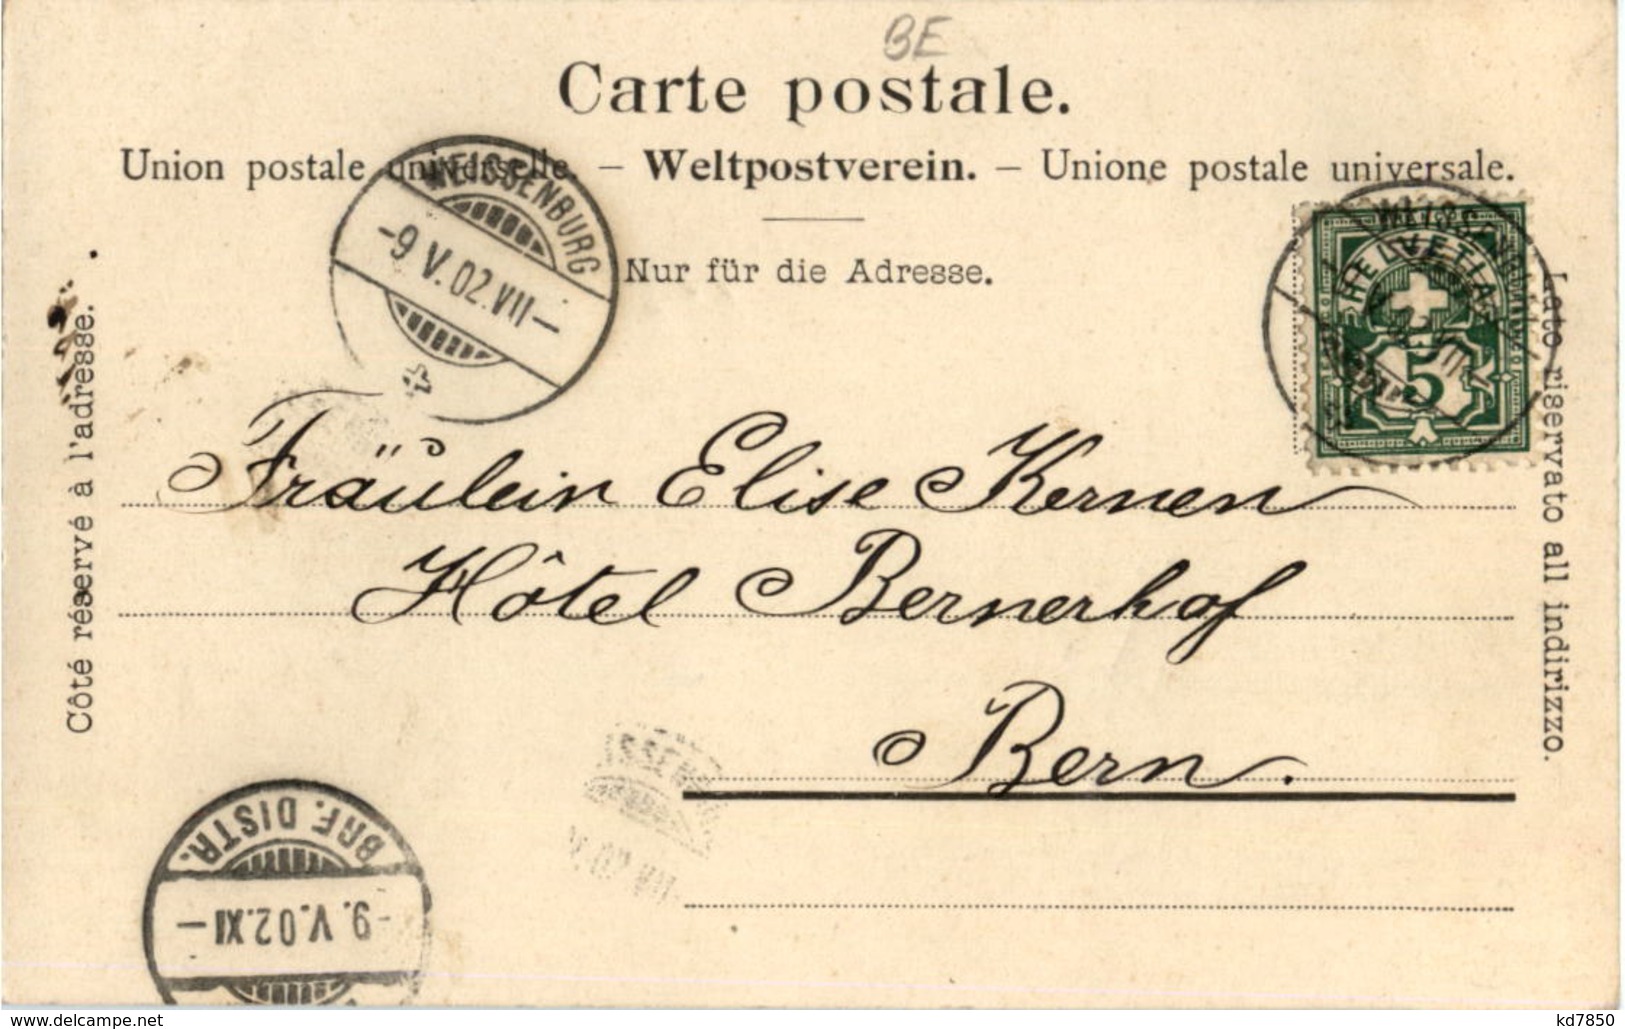 BE
Carte postale.
Union postale universelle. – Weltpostverein. – Unione postale universale.
Nur für die Adresse.
Côté réservé à l'adresse.
Lato riservato all indirizzo.
WEISSENBURG
-9.V.02.VII–
HELVETIA
5
Fräulein Elise Kernen
Hôtel Bernerhof
Bern.
BRF. DISTR.
-9.V.02.XI–
www.delcampe.net
kd7850